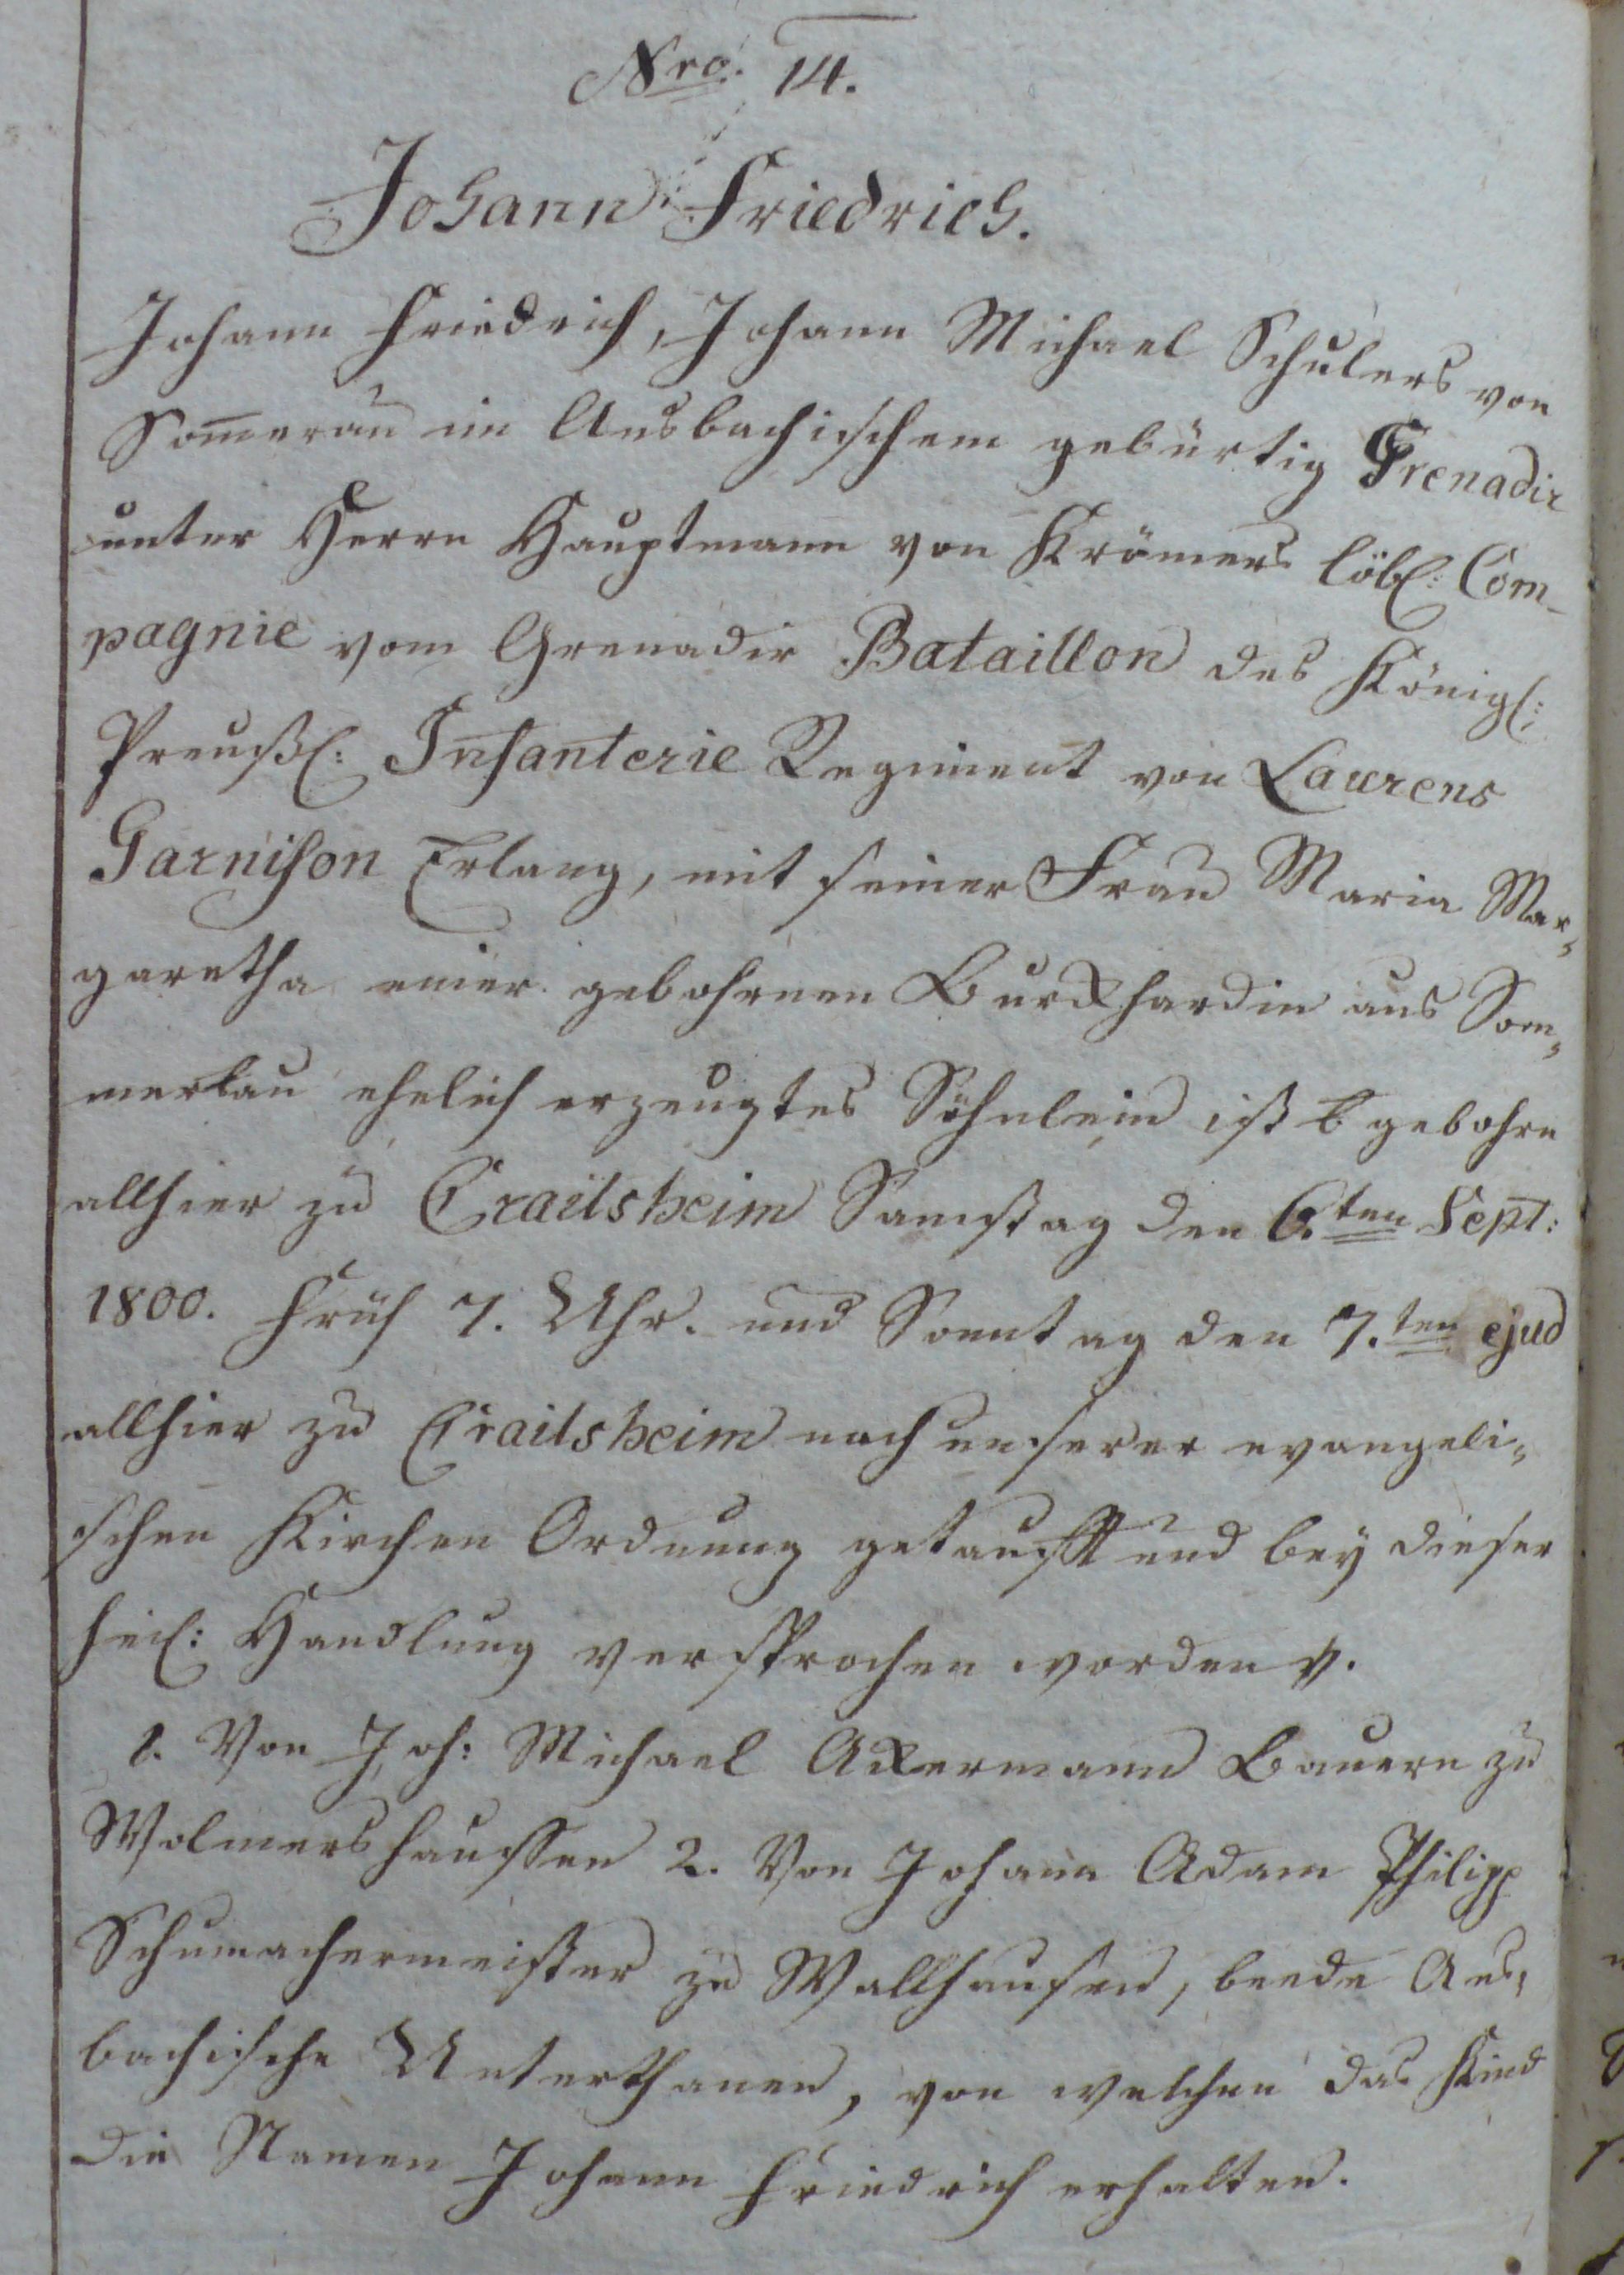 Nro. 14.
Johann Friedrich.
Johann Friedrich, Johann Michael Schulers von
Somerau im Ansbachischem gebürtig Grenadir
unter Herrn Hauptmann von Krömers löbl: Com-
pagnie vom Grenadir Bataillon des Königl:
Preußl: Infanterie Regiment von Laurens
Garnison Erlang, mit seiner Frau Maria Mar,
garetha einer gebohrnen Burkhardin aus Som,
merkau ehelich erzeugtes Söhnlein ist gebohrn
allhier zu Crailsheim Samstag den 6.ten Sept:
1800. früh 7. Uhr. und Sonntag den 7.ten ejud
allhier zu Crailsheim nach unserer evangeli,
schen Kirchen Ordnung getaufft und bey dieser
heil: Handlung versprochen worden
1. Von Joh: Michael Akermann Bauern zu
Wolmershaussen 2. Von Johann Adam Philipp
Schumachermeister zu Wallhausen, beede Ans,
bachische Unterthanen, von welchen das Kind
die Namen Johann Friedrich erhalten.